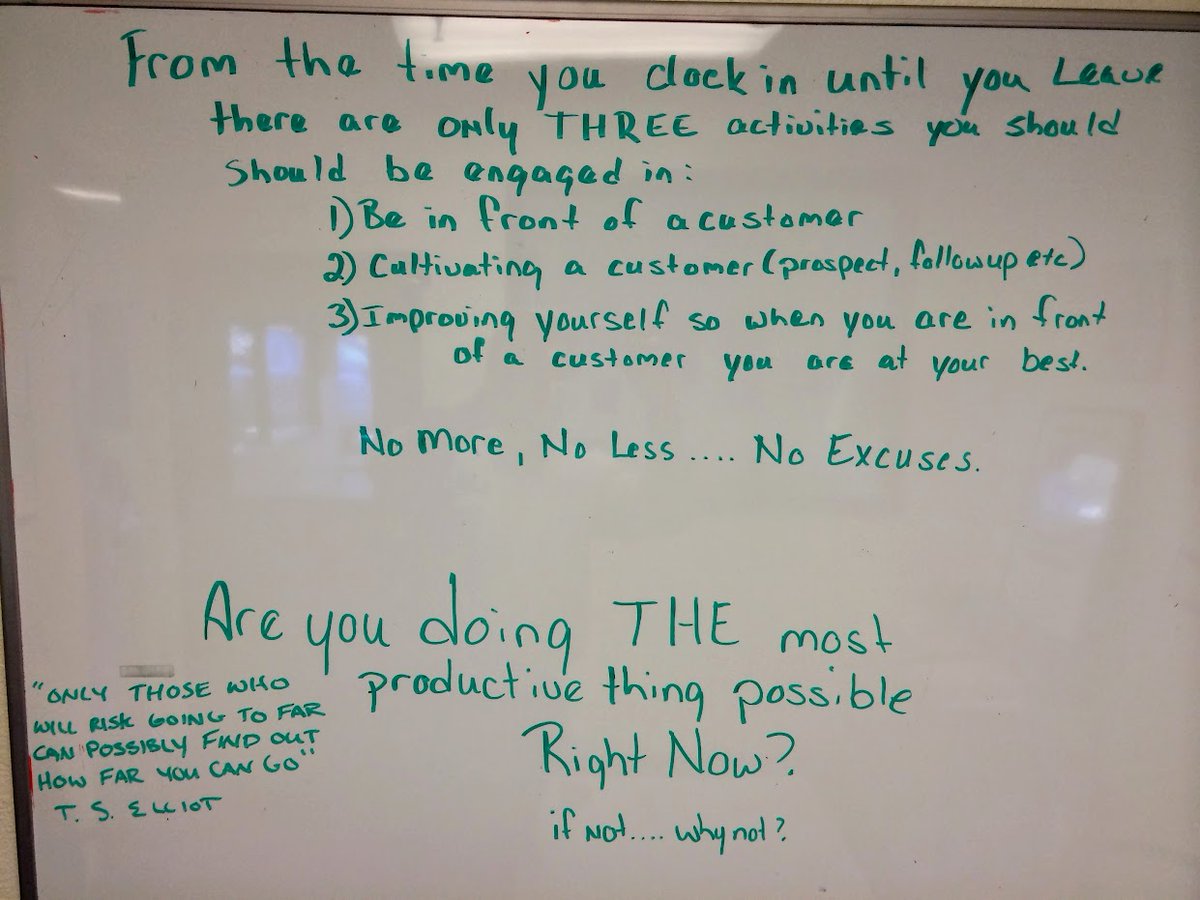 From the time you clock in until you Leave
there are only THREE activities you should
should be engaged in:
1) Be in front of a customer
2) Cultivating a customer (prospect, followup etc)
3) Improving yourself so when you are in front
of a customer you are at your best.
No more, No Less .... No Excuses.
Are you doing THE most
productive thing possible
Right Now?
if not.... why not?
"ONLY THOSE WHO
WILL RISK GOING TO FAR
CAN POSSIBLY FIND OUT
HOW FAR YOU CAN GO"
T. S. ELLIOT